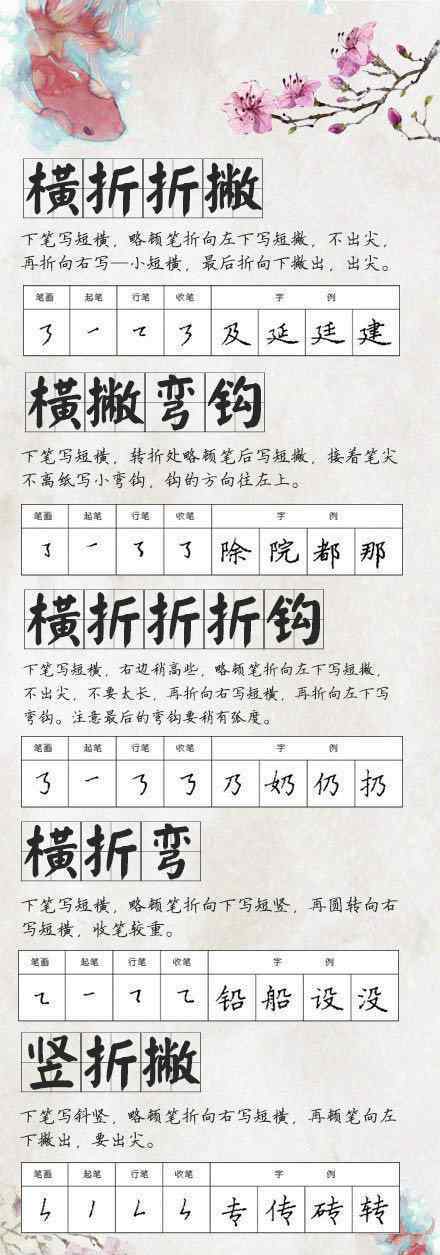 橫折折撇
下笔写短横，略顿笔折向左下写短撇，不出尖，
再折向右写一小短横，最后折向下撇出，出尖。
笔画 起笔 行笔 收笔 字 例
㇋ 及 延 廷 建
橫撇弯钩
下笔写短横，转折处略顿笔后写短撇，接着笔尖
不离纸写小弯钩，钩的方向往左上。
笔画 起笔 行笔 收笔 字 例
除 院 都 那
橫折折折钩
下笔写短横，右边稍高些，略顿笔折向左下写短撇，
不出尖，不要太长，再折向右写短横，再折向左下写
弯钩。注意最后的弯钩要稍有弧度。
笔画 起笔 行笔 收笔 字 例
乃 奶 仍 扔
橫折弯
下笔写短横，略顿笔折向下写短竖，再圆转向右
写短横，收笔较重。
笔画 起笔 行笔 收笔 字 例
铅 船 设 没
竖折撇
下笔写斜竖，略顿笔折向右写短横，再顿笔向左
下撇出，要出尖。
笔画 起笔 行笔 收笔 字 例
专 传 砖 转